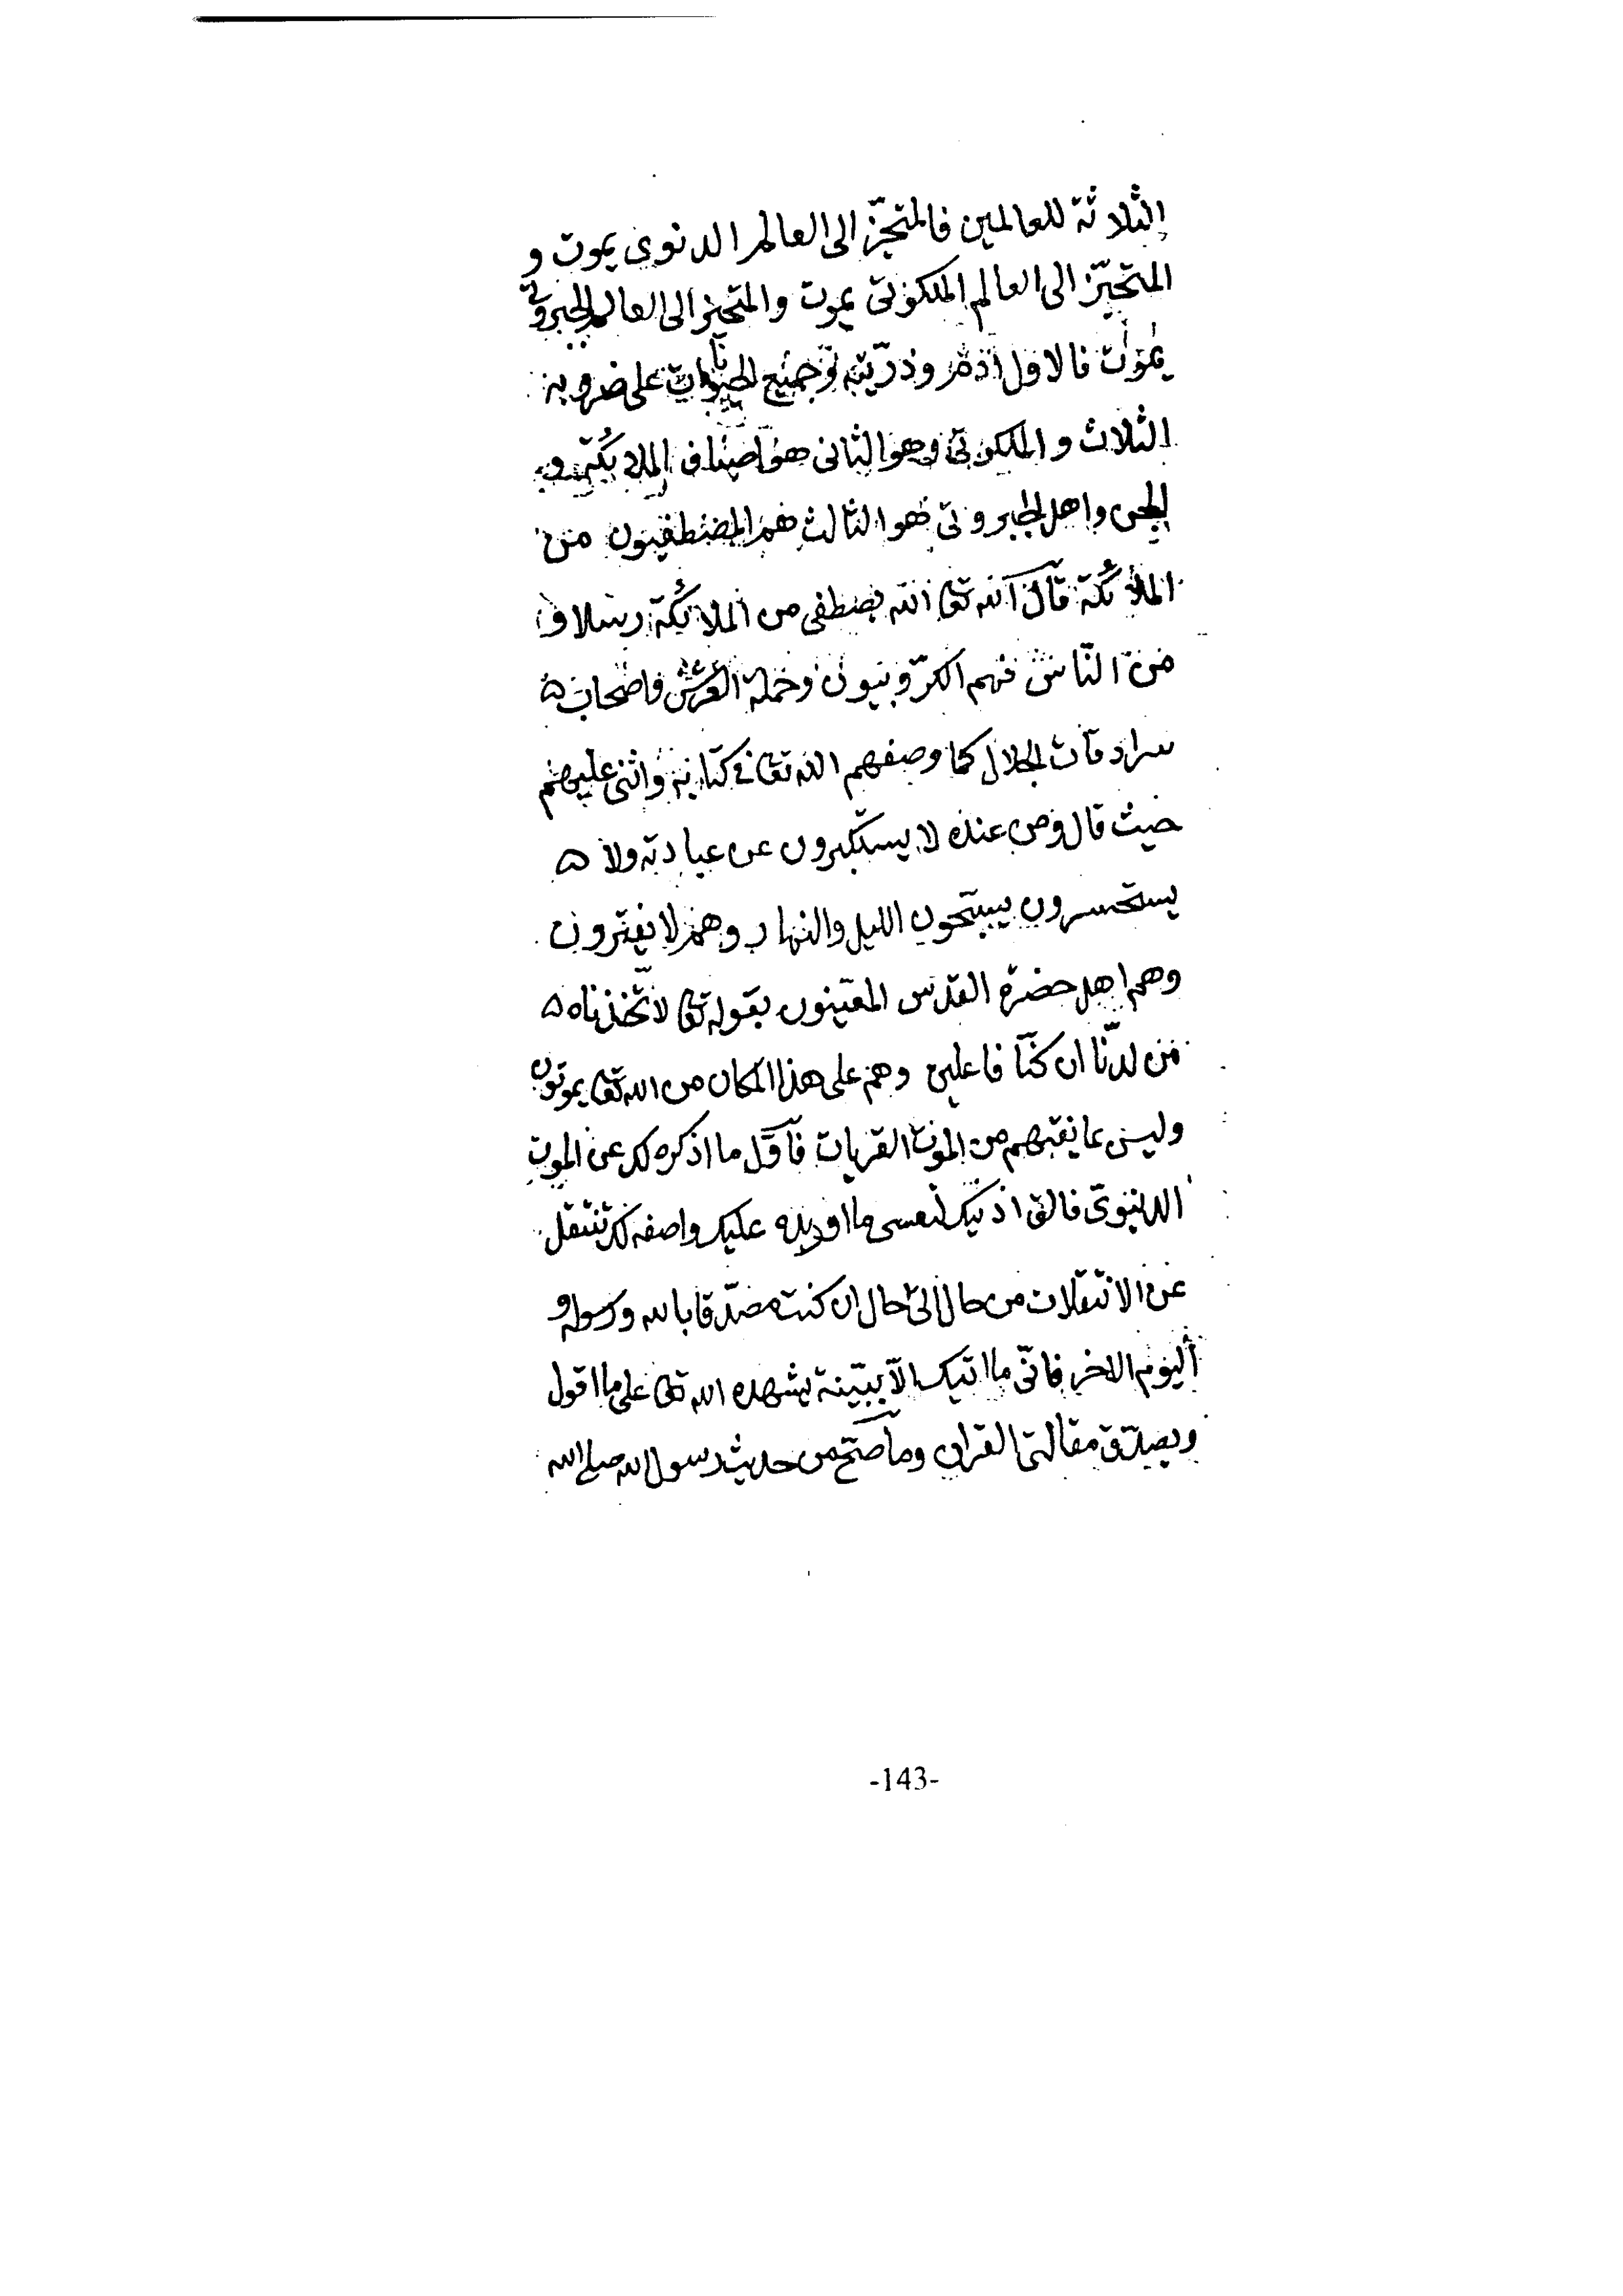 الثلاثة للعالمين فالمتحيّز الى العالم الدنوى يموت و
المتحيّز الى العالم الملكوتى يموت والمتحيز الى العالم الجبروتى
يموت فالاول اذم وذريّته وجميع الحيوانات على ضروبه
الثلاث و الملكوتى وهو الثانى هو اصناف الملائكة و
الجن واهل الجبروتى فهو الثالث هم المصطفون من
الملائكة قال الله تعالى الله يصطفى من الملائكة رسلا و
من النّاس فهم الكرّوبيون وحملة العرش واصحاب
سرادقات الجلال كما وصفهم الله تعالى فى كتابه واثنى عليهم
حيث قال ومن عنده لا يستكبرون عن عبادته ولا
يستحسرون يسبّحون الليل والنهار وهم لا يفترون
وهم اهل حضرة القدس المعنيون بقوله تعالى لاتّخذناه
من لدنّا ان كنّا فاعلين وهم على هذا المكان من الله تعالى يموتون
وليس من الموت القربات فأوّل ما اذكره لك عن الموت
الدنيوىّ فالق اذنيك لتعى ما اورده عليك واصفه لك تنتقل
عن الانتقلات من حال الى حال ان كنت مصدّقا بالله ورسوله و
اليوم الاخر فانّى ما اتيك الاّ ببيّنة يشهد الله تعالى على ما اقول
ويصدّق مقالتى القران وما صحّ من حديث رسول الله صلى الله
-143-